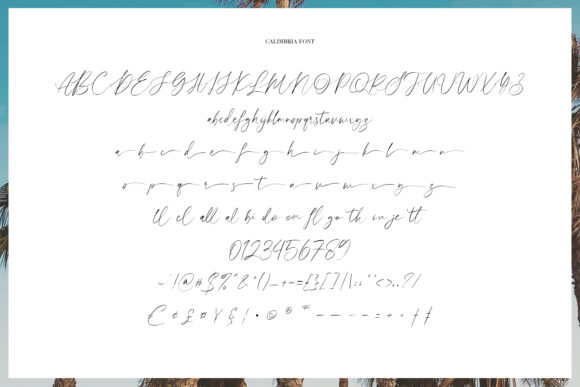 CALIMBRIA FONT
ABCDEFGHIJKLMNOPQRSTUVWXYZ
abcdefghijklmnopqrstuvwxyz
a b c d e f g h i j k l m n
o p q r s t u v w x y z
ll cl all al bi do en fl ga th in je tt
0123456789
~`!@#$%^&*()_+-={}[]/|\:;"'<>,.?/
€ ¢ £ ¤ ¥ § ¦ • © ® ™ — – - - ÷ + × † ‡